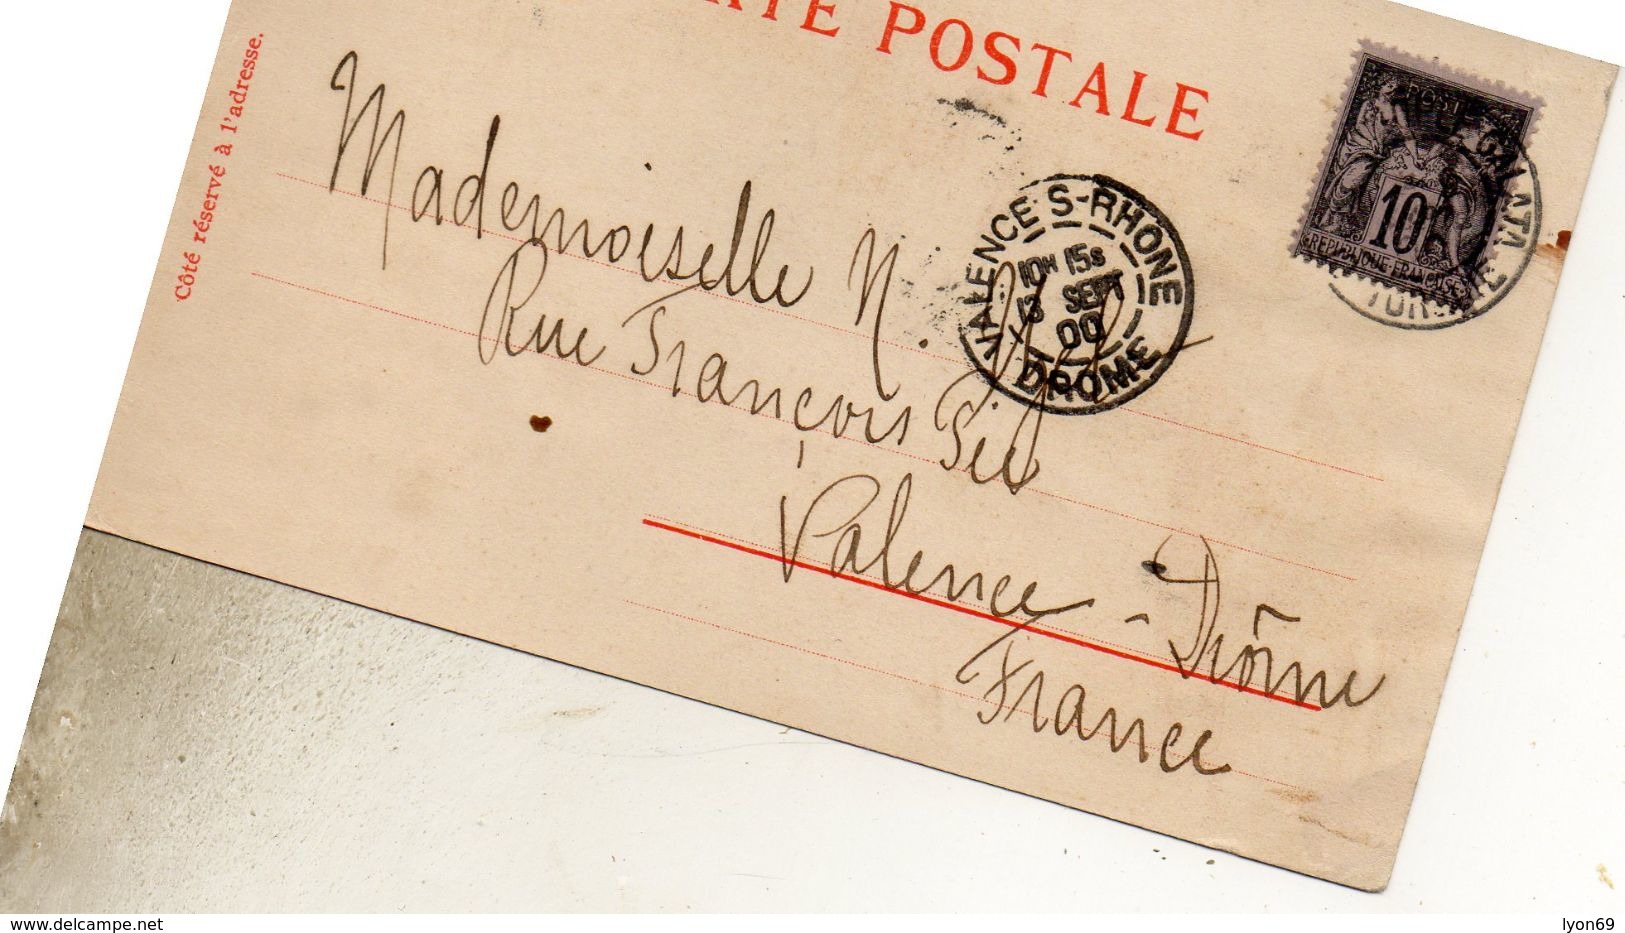 POSTALE
Côté réservé à l'adresse.
POSTE
10
REPUBLIQUE FRANÇAISE
GALATA
VALENCE S-RHONE
10H 15S
13 SEPT
00
DROME
Mademoiselle N.
Rue François Pie
Valence - Drôme
France
www.delcampe.net
lyon69